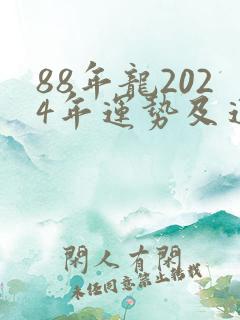 88年龍202
4年運勢及運
閑人有閑
未经同意禁止转载